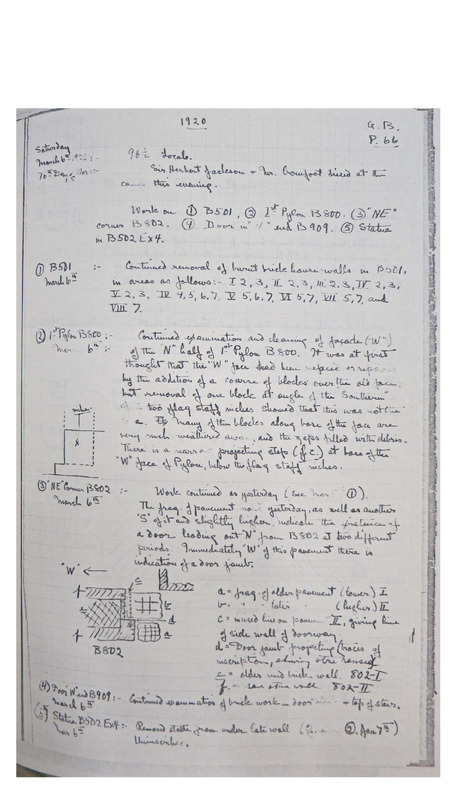 1920
G.B.
P. 66
Saturday
March 6th
96 1/2 Locals.
Sir Herbert Jackson + Mr. Crowfoot dined at the
camp this evening.
Work on ① B501, ② 1st Pylon B800. ③ "NE"
corner B802. ④ Door in "W" end B909. ⑤ Statue
in B502 Ex4.
① B501 :- Continued removal of burnt brick house walls in B501,
March 6th
in areas as follows:- I 2,3, II 2,3, III 2,3, IV 2,3,
V 2,3, IV 4,5,6,7, V 5,6,7, VI 5,7, VII 5,7, and
VIII 7.
② 1st Pylon B800 :- Continued examination and cleaning of façade ("W")
6th :- of the N" half of 1st Pylon B800. It was at first
thought that the "W" face had been
by the addition of a course of blocks over the old face,
but removal of one block at angle of the Southern
two flag staff niches showed that this was not the
Many of the blocks along base of the face are
very much weathered away, and the gaps filled with debris.
There is a narrow projecting step at base of the
"W" face of Pylon, below the flag staff niches.
③ "NE" Corner B802 :- Work continued as yesterday (see ①).
March 6th
The frag. of pavement yesterday, as well as another
"S" of it and slightly higher, indicate the existence of
a door leading out "N" from B802 at two different
periods. Immediately "W" of this pavement there is
indication of a door jamb.
"W"
B802
a = frag. of older pavement (lower) I
b = " " later (higher) II
c = incised line on pavement II, giving line
of side wall of doorway
d = Door jamb projecting (traces of
inscription, stone reused)
e = older mud brick wall. 802-I
f = wall 802-II
④ Door W end B909 :- Continued examination of brick work in door + top of stairs.
March 6th
⑤ Statue B502 Ex4 :- Removed statue from under late wall Jan 7th)
Mar 6th
Uninscribed.